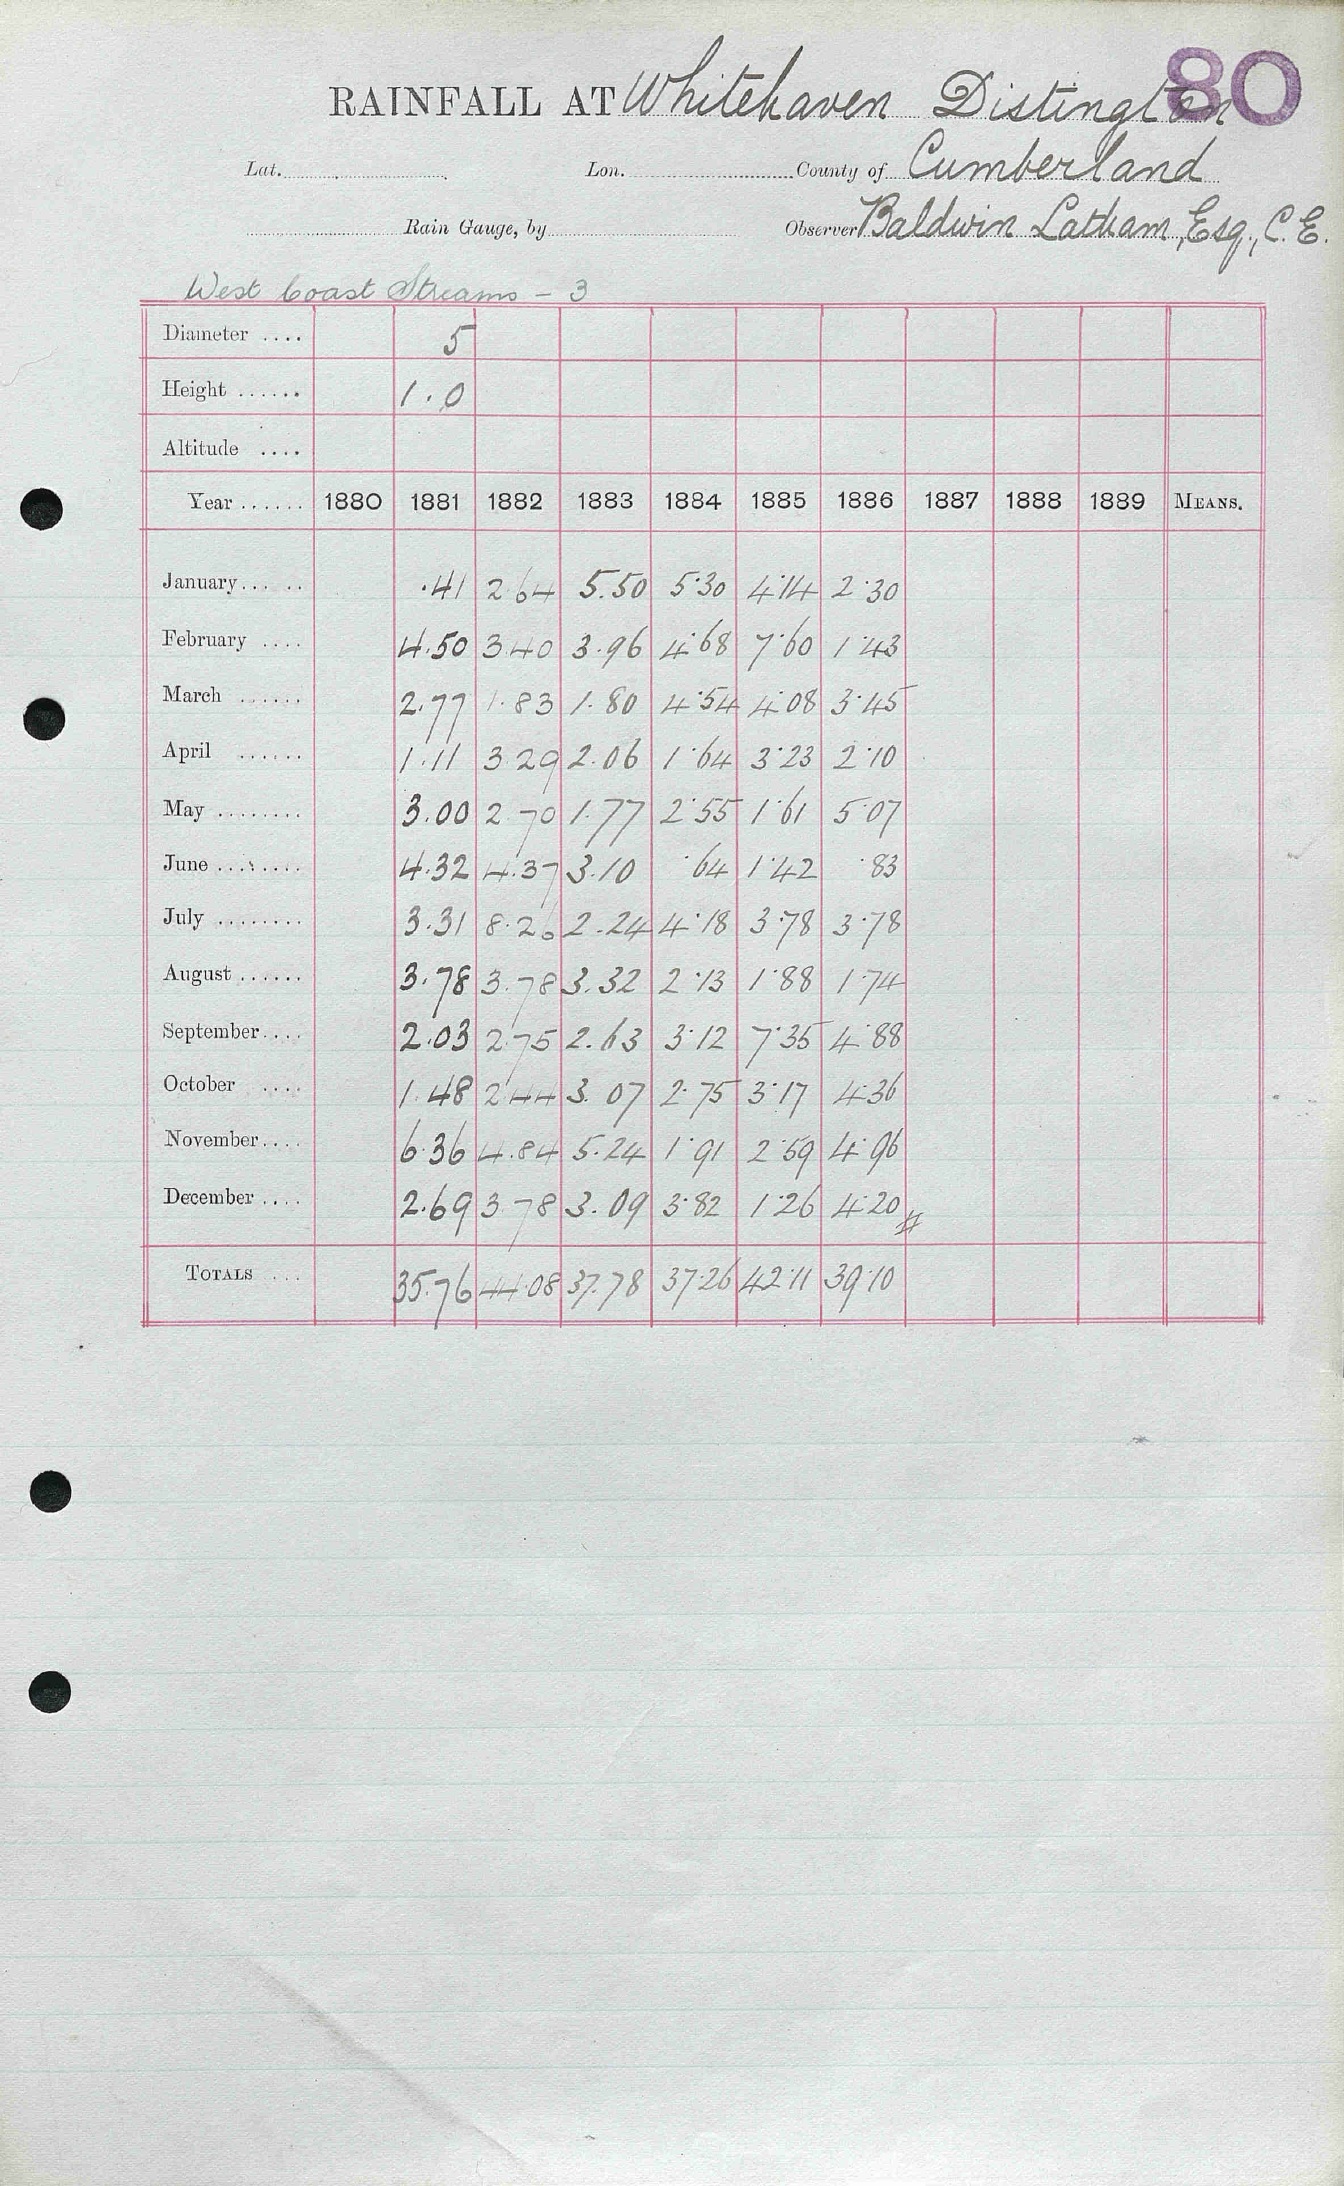 80
RAINFALL AT Whitehaven Distington
Lat. Lon. County of Cumberland
Rain Gauge, by Observer Baldwin Latham, Esq., C.E.
West Coast Streams - 3
Diameter .... 5
Height ...... 1.0
Altitude ....
Year ...... 1880 1881 1882 1883 1884 1885 1886 1887 1888 1889 MEANS.
January ..... .41 2.64 5.50 5.30 4.14 2.30
February .... 4.50 3.40 3.96 4.68 7.60 1.43
March ...... 2.77 1.83 1.80 4.54 4.08 3.45
April ...... 1.11 3.29 2.06 1.64 3.23 2.10
May ........ 3.00 2.70 1.77 2.55 1.61 5.07
June ........ 4.32 4.37 3.10 .64 1.42 .83
July ........ 3.31 8.26 2.24 4.18 3.78 3.78
August ...... 3.78 3.78 3.32 2.13 1.88 1.74
September .... 2.03 2.75 2.63 3.12 7.35 4.88
October .... 1.48 2.44 3.07 2.75 3.17 4.36
November .... 6.36 4.84 5.24 1.91 2.59 4.96
December .... 2.69 3.78 3.09 3.82 1.26 4.20 #
TOTALS ... 35.76 44.08 37.78 37.26 42.11 39.10